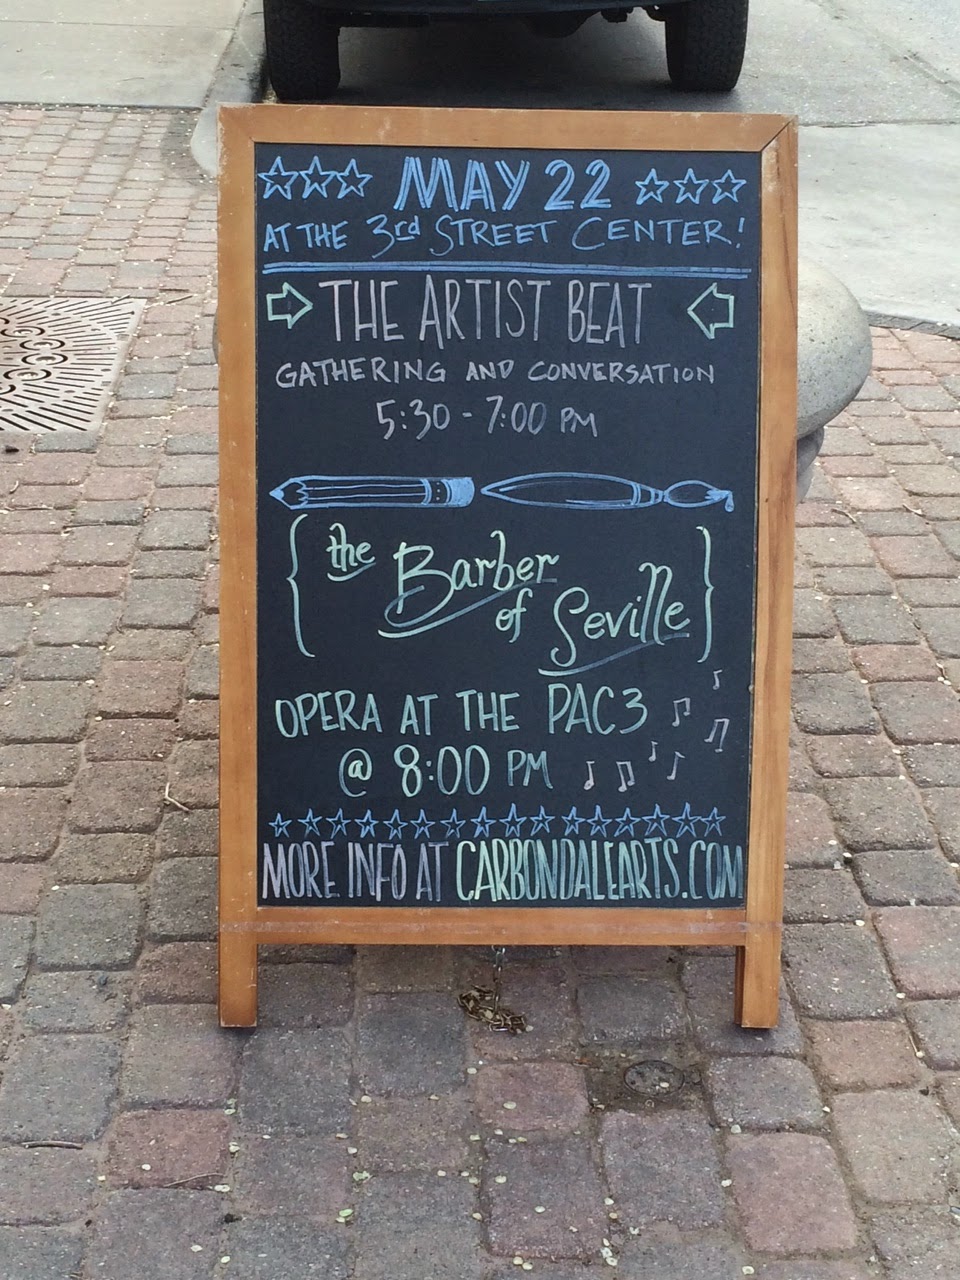 MAY 22
AT THE 3rd STREET CENTER!
THE ARTIST BEAT
GATHERING AND CONVERSATION
5:30 - 7:00 PM
{ the Barber }
of Seville
OPERA AT THE PAC3
@ 8:00 PM
MORE INFO AT CARBONDALEARTS.COM